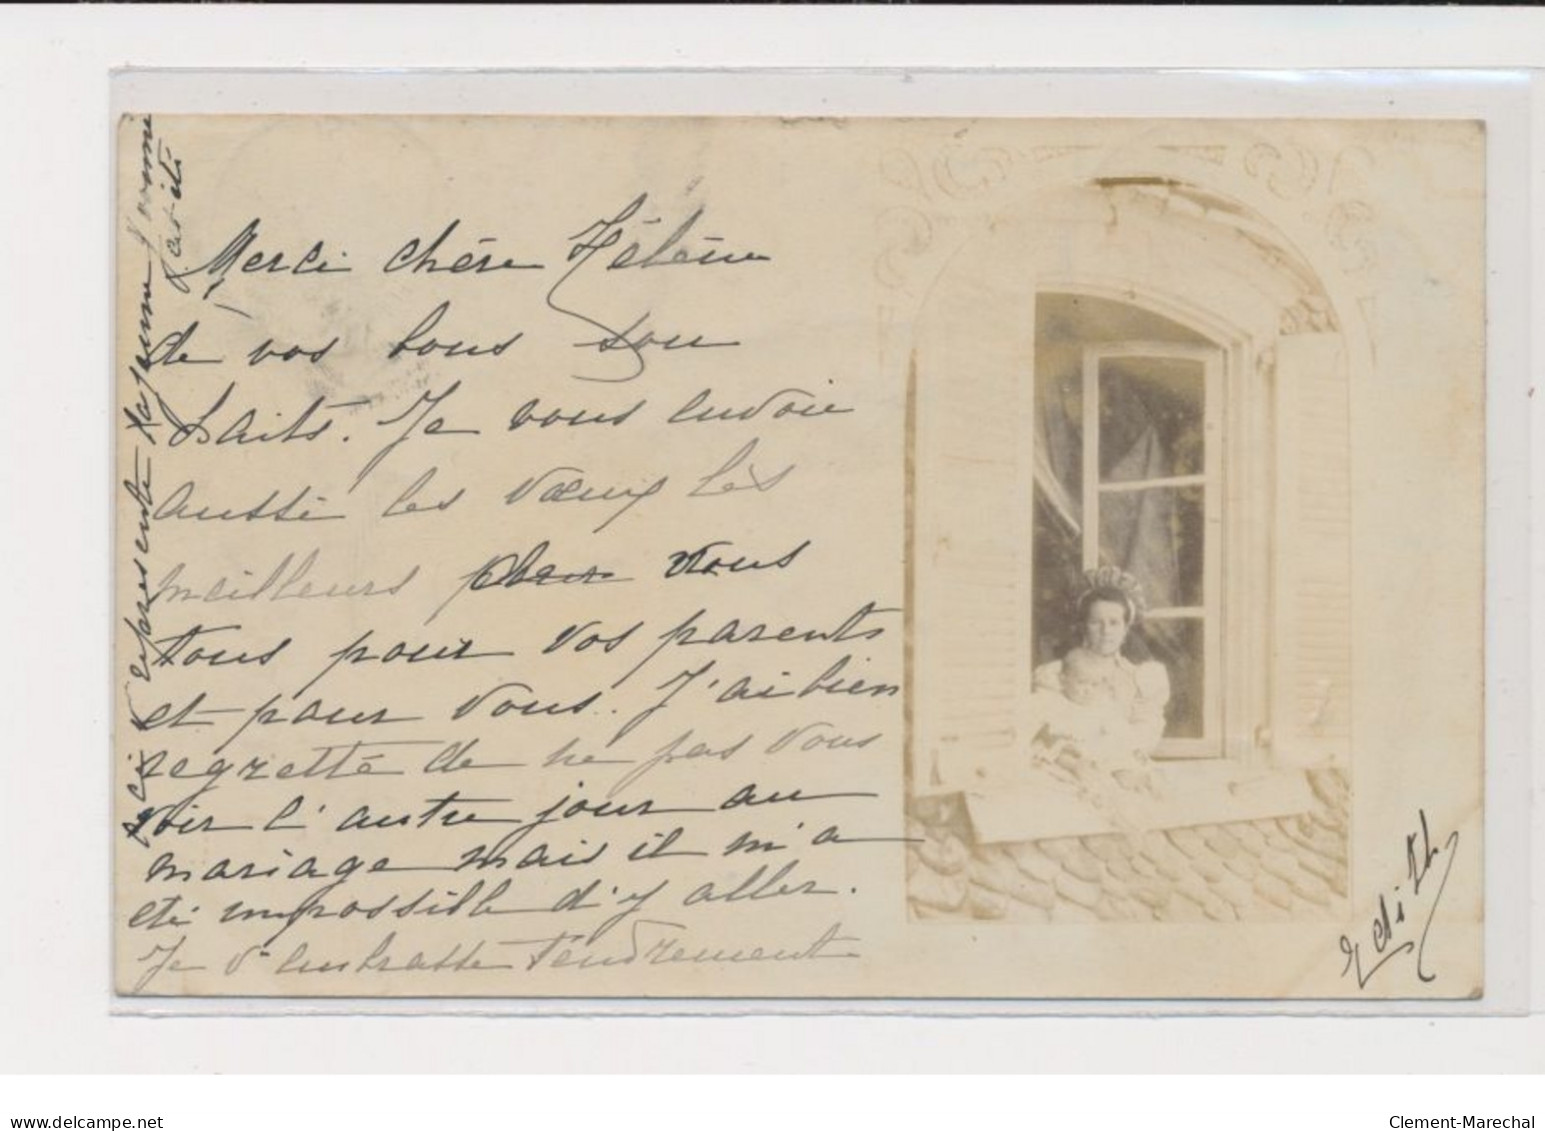 Merci chère Hélène
de vos bons sou
haits. Je vous envoie
aussi les vœux les
meilleurs pour vous
tous pour vos parents
et pour vous. J'ai bien
regretté de ne pas vous
voir l'autre jour au
mariage mais il m'a
été impossible d'y aller.
Je v embrasse tendrement
Edith
ceci représente la femme
www.delcampe.net
Clement-Marechal